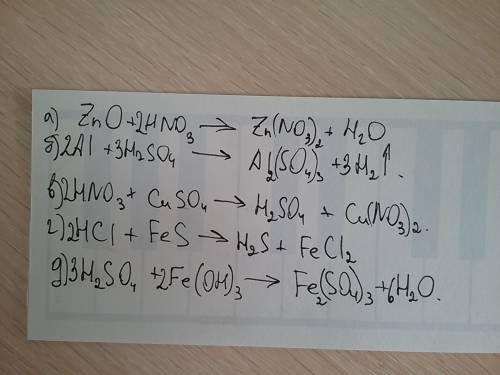 а) ZnO + 2HNO₃ → Zn(NO₃)₂ + H₂O
б) 2Al + 3H₂SO₄ → Al₂(SO₄)₃ + 3H₂↑.
в) 2HNO₃ + CuSO₄ → H₂SO₄ + Cu(NO₃)₂.
г) 2HCl + FeS → H₂S + FeCl₂
д) 3H₂SO₄ + 2Fe(OH)₃ → Fe₂(SO₄)₃ + 6H₂O.